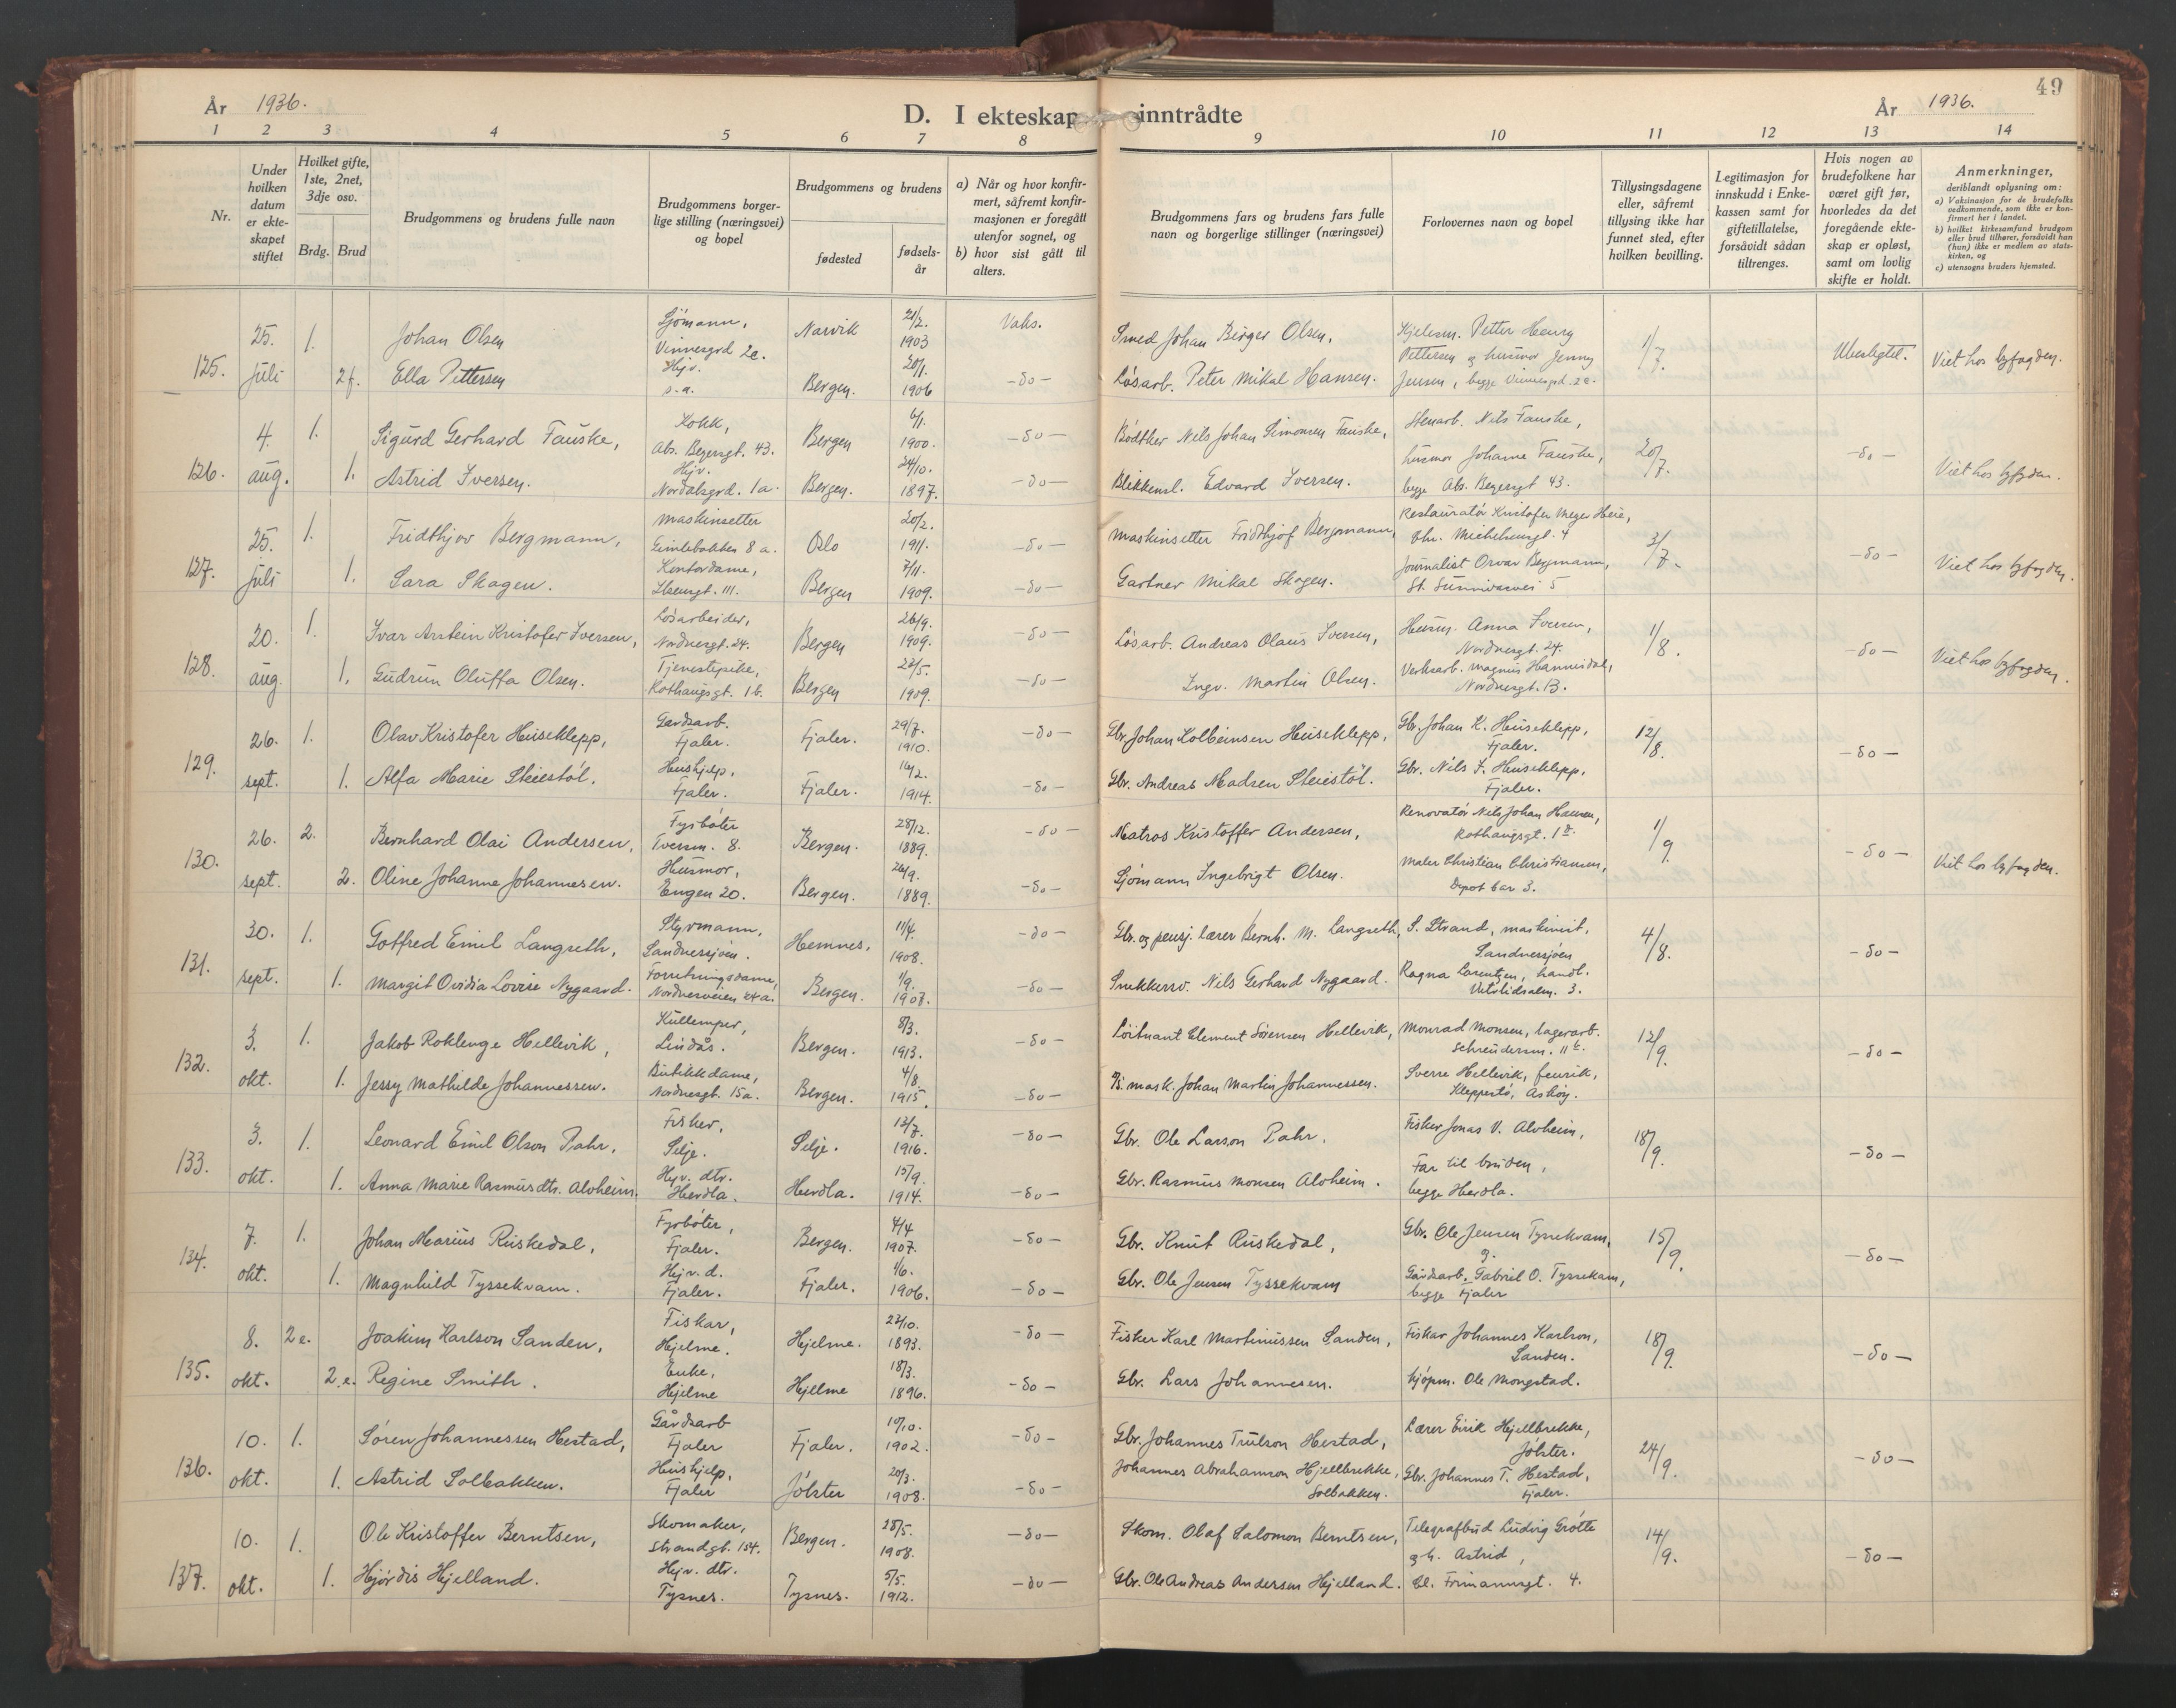 År 1936.
D. I ekteskap inntrådte
År 1936.
49
1 2 3 4 5 6 7 8 9 10 11 12 13 14
Nr.
Under hvilken datum er ekteskapet stiftet
Hvilket gifte, 1ste, 2net, 3dje osv.
Brdg. Brud
Brudgommens og brudens fulle navn
Brudgommens borgerlige stilling (næringsvei) og bopel
Brudgommens og brudens
fødested
fødselsår
a) Når og hvor konfirmert, såfremt konfirmasjonen er foregått utenfor sognet, og
b) hvor sist gått til alters.
Brudgommens fars og brudens fars fulle navn og borgerlige stillinger (næringsvei)
Forlovernes navn og bopel
Tillysingsdagene eller, såfremt tillysing ikke har funnet sted, efter hvilken bevilling.
Legitimasjon for innskudd i Enkekassen samt for giftetillatelse, forsåvidt sådan tiltrenges.
Hvis nogen av brudefolkene har været gift før, hvorledes da det foregående ekteskap er opløst, samt om lovlig skifte er holdt.
Anmerkninger, deriblandt oplysning om:
a) Vaksinasjon for de brudefolks vedkommende, som ikke er konfirmert her i landet.
b) hvilket kirkesamfund brudgom eller brud tilhører, forsåvidt han (hun) ikke er medlem av statskirken, og
c) utensogns bruders hjemsted.
125. 25. juli 1. Johan Olsen Sjømann, Vinnesgrd 2c. Narvik 21/2. 1903 Vaks. Smed Johan Birger Olsen, Kjelesm. Petter Henry Pettersen og husmor Jenny 1/7. Ubesligtet. Viet hos byfogden.
2 f. Ella Pettersen Hjv. s.a. Bergen. 20/1. 1906 -do- Løsarb. Peter Mikal Hansen. Jensen, begge Vinnesgrd. 2c.
126. 4. aug. 1. Sigurd Gerhard Fauske, Kokk, Abs. Beyersgt. 43. Bergen 6/1. 1900. -do- Bødtker Nils Johan Simonsen Fauske, Stenarb. Nils Fauske, husmor Johanne Fauske, 20/7. -do- Viet hos byfogden.
1. Astrid Iversen. Hjv. Nordalsgrd. 1a. Bergen. 24/10. 1897. -do- Blikkensl. Edvard Iversen. begge Abs. Beyersgt 43.
127. 25. juli 1. Fridthjov Bergmann, Maskinsetter Gimlebakken 8a. Oslo 20/2. 1911. -do- Maskinsetter Fridthjof Bergmann, Restauratør Kristofer Meyer Heie, Chr. Michelsensgt. 4 3/7. -do- Viet hos byfogden.
1. Sara Skagen. Kontordame, Steensgt. III. Bergen 7/11. 1909. -do- Gartner Mikal Skagen. Journalist Orvar Bergmann, St. Sunnivasvei 5
128. 20. aug. 1. Ivar Arstein Kristofer Iversen, Løsarbeider, Nordnesgt. 24. Bergen 26/9. 1909. -do- Løsarb. Andreas Olaus Iversen, Husm. Anna Iversen, Nordnesgt. 24. 1/8. -do- Viet hos byfogden.
1. Gudrun Oluffa Olsen. Tjenestepike, Kothaugsgt. 1b. Bergen 22/5. 1909. -do- Ingv. Martin Olsen. Verksarb. Magnus Hannisdal, Nordnesgt. 13.
129. 26. sept. 1. Olav Kristofer Huseklepp, Gardsarb. Fjaler. Fjaler. 29/7. 1910. -do- Gbr. Johan Kolbeinsen Huseklepp, Gbr. Johan K. Huseklepp, Fjaler. 12/8. -do-
1. Alfa Marie Steiestøl. Hushjelp, Fjaler. Fjaler. 14/2. 1914. -do- Gbr. Andreas Madsen Steiestøl. Gbr. Nils J. Huseklepp, Fjaler.
130. 26. sept. 2. Bernhard Olai Andersen, Fyrbøter Tversm. 8. Bergen. 28/12. 1889. -do- Matros Kristoffer Andersen, Renovatør Nils Johan Hansen, Kothaugsgt. 1 1/9. -do- Viet hos byfogden.
2. Oline Johanne Johannesen. Husmor, Engen 20. Bergen. 26/9. 1889. -do- Sjømann Ingebrigt Olsen. Maler Christian Christiansen, Depotbar 3.
131. 30. sept. 1. Gotfred Emil Langseth, Styrmann, Sandnessjøen. Hemnes. 11/4. 1908. -do- Gbr. og pensj. lærer Bernh. M. Langseth, S. Strand, maskinist, Sandnessjøen 4/8. -do-
1. Margit Ovidia Lovise Nygaard. Forretningsdame, Nordnesveien 24a. Bergen. 1/9. 1907. -do- Snekkersv. Nils Gerhard Nygaard. Ragna Lorentzen, handl. Vetrlidsalm. 3.
132. 3. okt. 1. Jakob Roklenge Hellevik, Kullemper, Lindås. Bergen. 8/3. 1913. -do- Løitnant Clement Sørensen Hellevik, Monrad Monsen, lagerarb. Schreudersm. 11 12/9. -do-
1. Jessy Mathilde Johannessen. Butikkdame, Nordnesgt. 15a. Bergen. 4/8. 1915. -do- mask. Johan Martin Johannessen. Sverre Hellevik, fenrik, Kleppestø, Askøy.
133. 3. okt. 1. Leonard Emil Olson Pahr, Fisker, Selje. Selje. 12/7. 1916. -do- Gbr. Ole Larson Pahr, Fisker Jonas V. Alvheim, 18/9. -do-
1. Anna Marie Rasmusdtr. Alvheim. Hjv. dtr. Herdla. Herdla. 15/9. 1914. -do- Gbr. Rasmus Monsen Alvheim. Far til bruden, begge Herdla.
134. 7. okt. 1. Johan Marius Ruskedal, Fyrbøter, Fjaler. Bergen. 4/4 1907. -do- Gbr. Knut Ruskedal, Gbr. Ole Jensen Tyssekvam, 15/9. -do-
1. Magnhild Tyssekvam. Hjv. d. Fjaler. Fjaler. 1/6. 1906. -do- Gbr. Ole Jensen Tyssekvam g. Gårdsarb. Gabriel O. Tyssekam, begge Fjaler
135. 8. okt. 2 e. Joakim Karlson Sanden, Fiskar, Hjelme. Hjelme. 22/10. 1893. -do- Fisker Karl Martinussen Sanden, Fiskar Johannes Karlson, Sanden. 18/9. -do-
2.e. Regine Smith. Enke, Hjelme Hjelme 18/3. 1896. -do- Gbr. Lars Johannesen. kjøpm. Ole Mongstad.
136. 10. okt. 1. Søren Johannessen Hestad, Gårdsarb Fjaler Fjaler. 10/10. 1902. -do- Gbr. Johannes Trulson Hestad, Lærer Eirik Hjellbrekke, Jølster. 24/9. -do-
1. Astrid Solbakken. Hushjelp, Fjaler Jølster 20/3. 1908. -do- Johannes Abrahamson Hjellbrekke, Solbakken. Gbr. Johannes T. Hestad, Fjaler.
137. 10. okt. 1. Ole Kristoffer Berntsen, Skomaker, Strandgt. 154. Bergen. 28/5. 1908. -do- Skom. Olaf Salomon Berntsen, Telegrafbud Ludvig Grøtte gh. Astrid, 14/9. -do-
1. Hjørdis Hjelland. Hjv. dtr. Tysnes. Tysnes. 5/5. 1912. -do- Gbr. Ole Andreas Andersen Hjelland. Cl. Frimannsgt. 4.